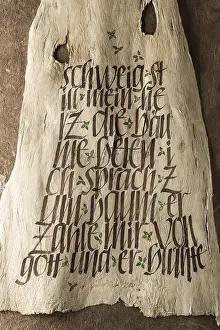 schweig st
ill mein he
rz die bäu
me beten i
ch sprach z
um baum er
zähle mir von
gott und er blühte